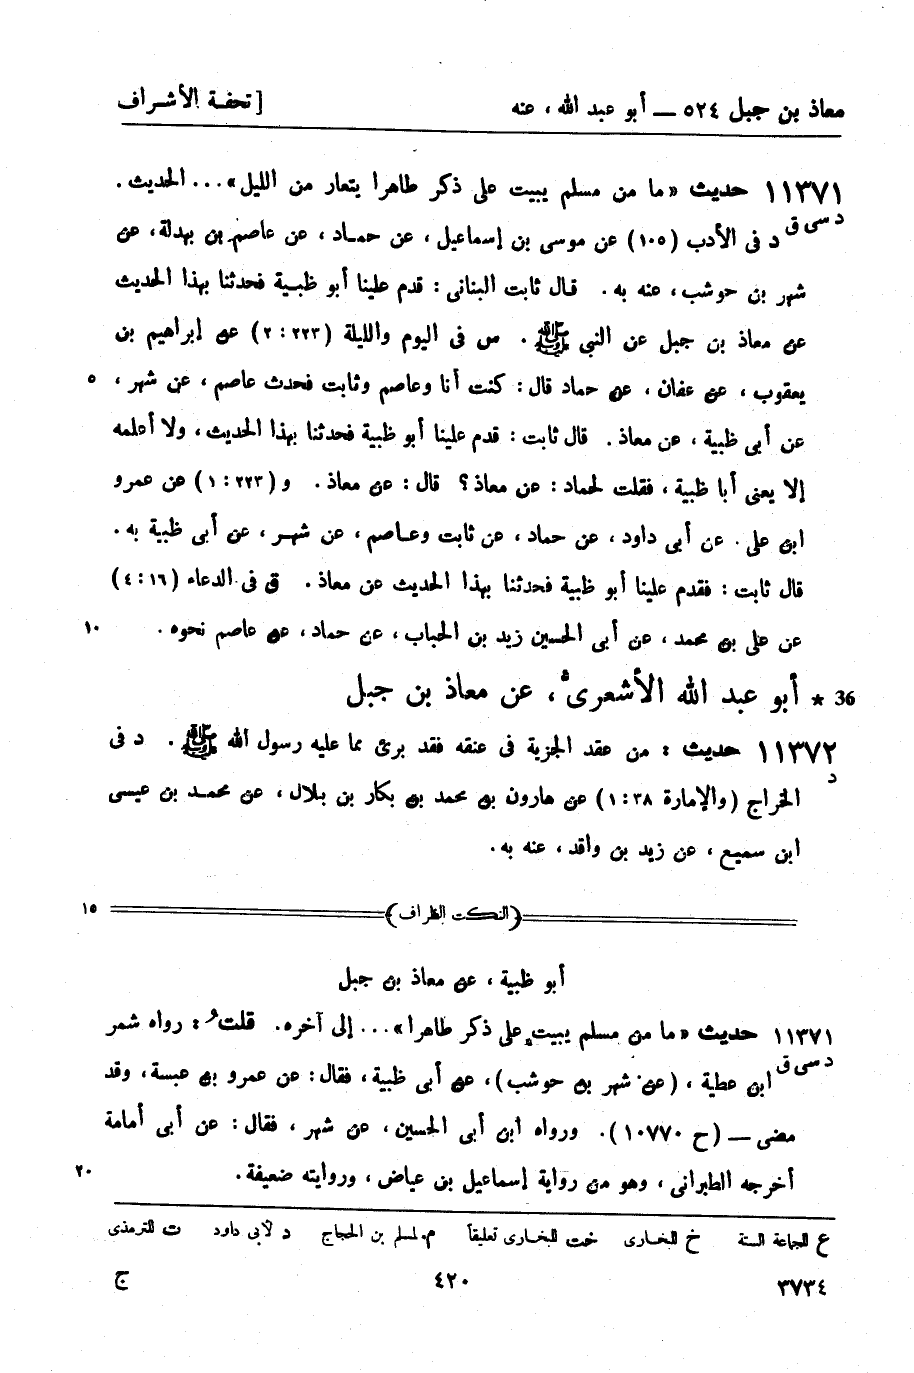 معاذ بن جبل ٥٢٤ — أبو عبد الله ، عنه [ تحفة الأشراف
١١٣٧١ حديث « ما من مسلم يبيت على ذكر طاهرا يتعار من الليل» ... الحديث .
د سى ق د فى الأدب (١٠٥) عن موسى بن إسماعيل ، عن حمـاد ، عن عاصم بن بهدلة، عن
شهر بن حوشب، عنه به . قال ثابت البنانى : قدم علينا أبو ظبـية فحدثنا بهذا الحديث
عن معاذ بن جبل عن النبى ﷺ . س فى اليوم والليلة (٢٢٣ : ٢) عن إبراهيم بن
يعقوب ، عن عفان ، عن حماد قال : كنت أنا وعاصم وثابت فحدث عاصم ، عن شهر ، ٥
عن أبى ظبية ، عن معاذ . قال ثابت : قدم علينا أبو ظبية فحدثنا بهذا الحديث ، ولا أعلمه
إلا يعنى أبا ظبية ، فقلت لحماد : عن معاذ ؟ قال : عن معاذ . و (٢٢٣ : ١) عن عمرو
ابن على . عن أبى داود ، عن حماد ، عن ثابت وعـاصم ، عن شهـر ، عن أبى ظبية به .
قال ثابت : فقدم علينا أبو ظبية فحدثنا بهذا الحديث عن معاذ . ق فى الدعاء (١٦ : ٤)
عن على بن محمد ، عن أبى الحسين زيد بن الحباب ، عن حماد ، عن عاصم نحوه . ١٠
36 * أبو عبد الله الأشعرى ، عن معاذ بن جبل
١١٣٧٢ حديث : من عقد الجزية فى عنقه فقد برئ مما عليه رسول الله ﷺ . د فى
د الخراج (والإمارة ٣٨ : ١) عن هارون بن محمد بن بكار بن بلال ، عن محمـد بن عيسى
ابن سميع ، عن زيد بن واقد ، عنه به .
(النكت الظراف) ١٥
أبو ظبية ، عن معاذ بن جبل
١١٣٧١ حديث « ما من مسلم يبيت على ذكر طاهرا» ... إلى آخره . قلت : رواه شمر
د سى ق ابن عطية ، (عن شهر بن حوشب)، عن أبى ظبية ، فقال : عن عمرو بن عبسة ، وقد
مضى — (ح ١٠٧٧٠) . ورواه ابن أبى الحسين ، عن شهر ، فقال : عن أبى أمامة
أخرجه الطبرانى ، وهو من رواية إسماعيل بن عياش ، وروايته ضعيفة . ٢٠
ع للجماعة الستة خ للبخـارى خت للبخـارى تعليقاً م لمسلم بن الحجاج د لأبى داود ت للترمذى
٣٧٣٤ ٤٢٠ ج